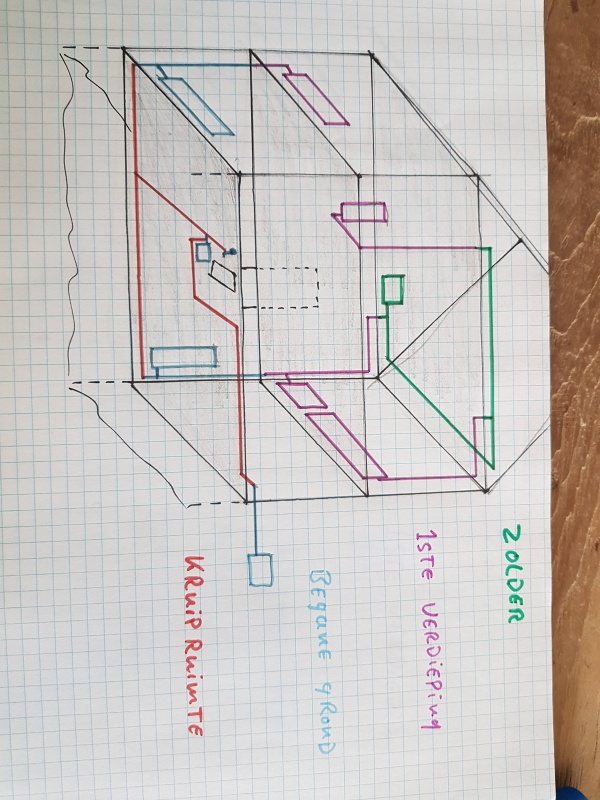 ZOLDER
1STE VERDIEPING
BEGANE GROND
KRUIPRUIMTE